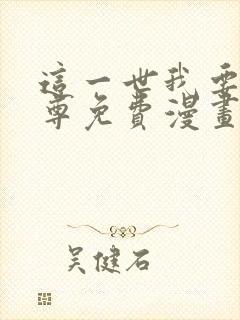 這一世我要
尊免費漫畫
吴健石